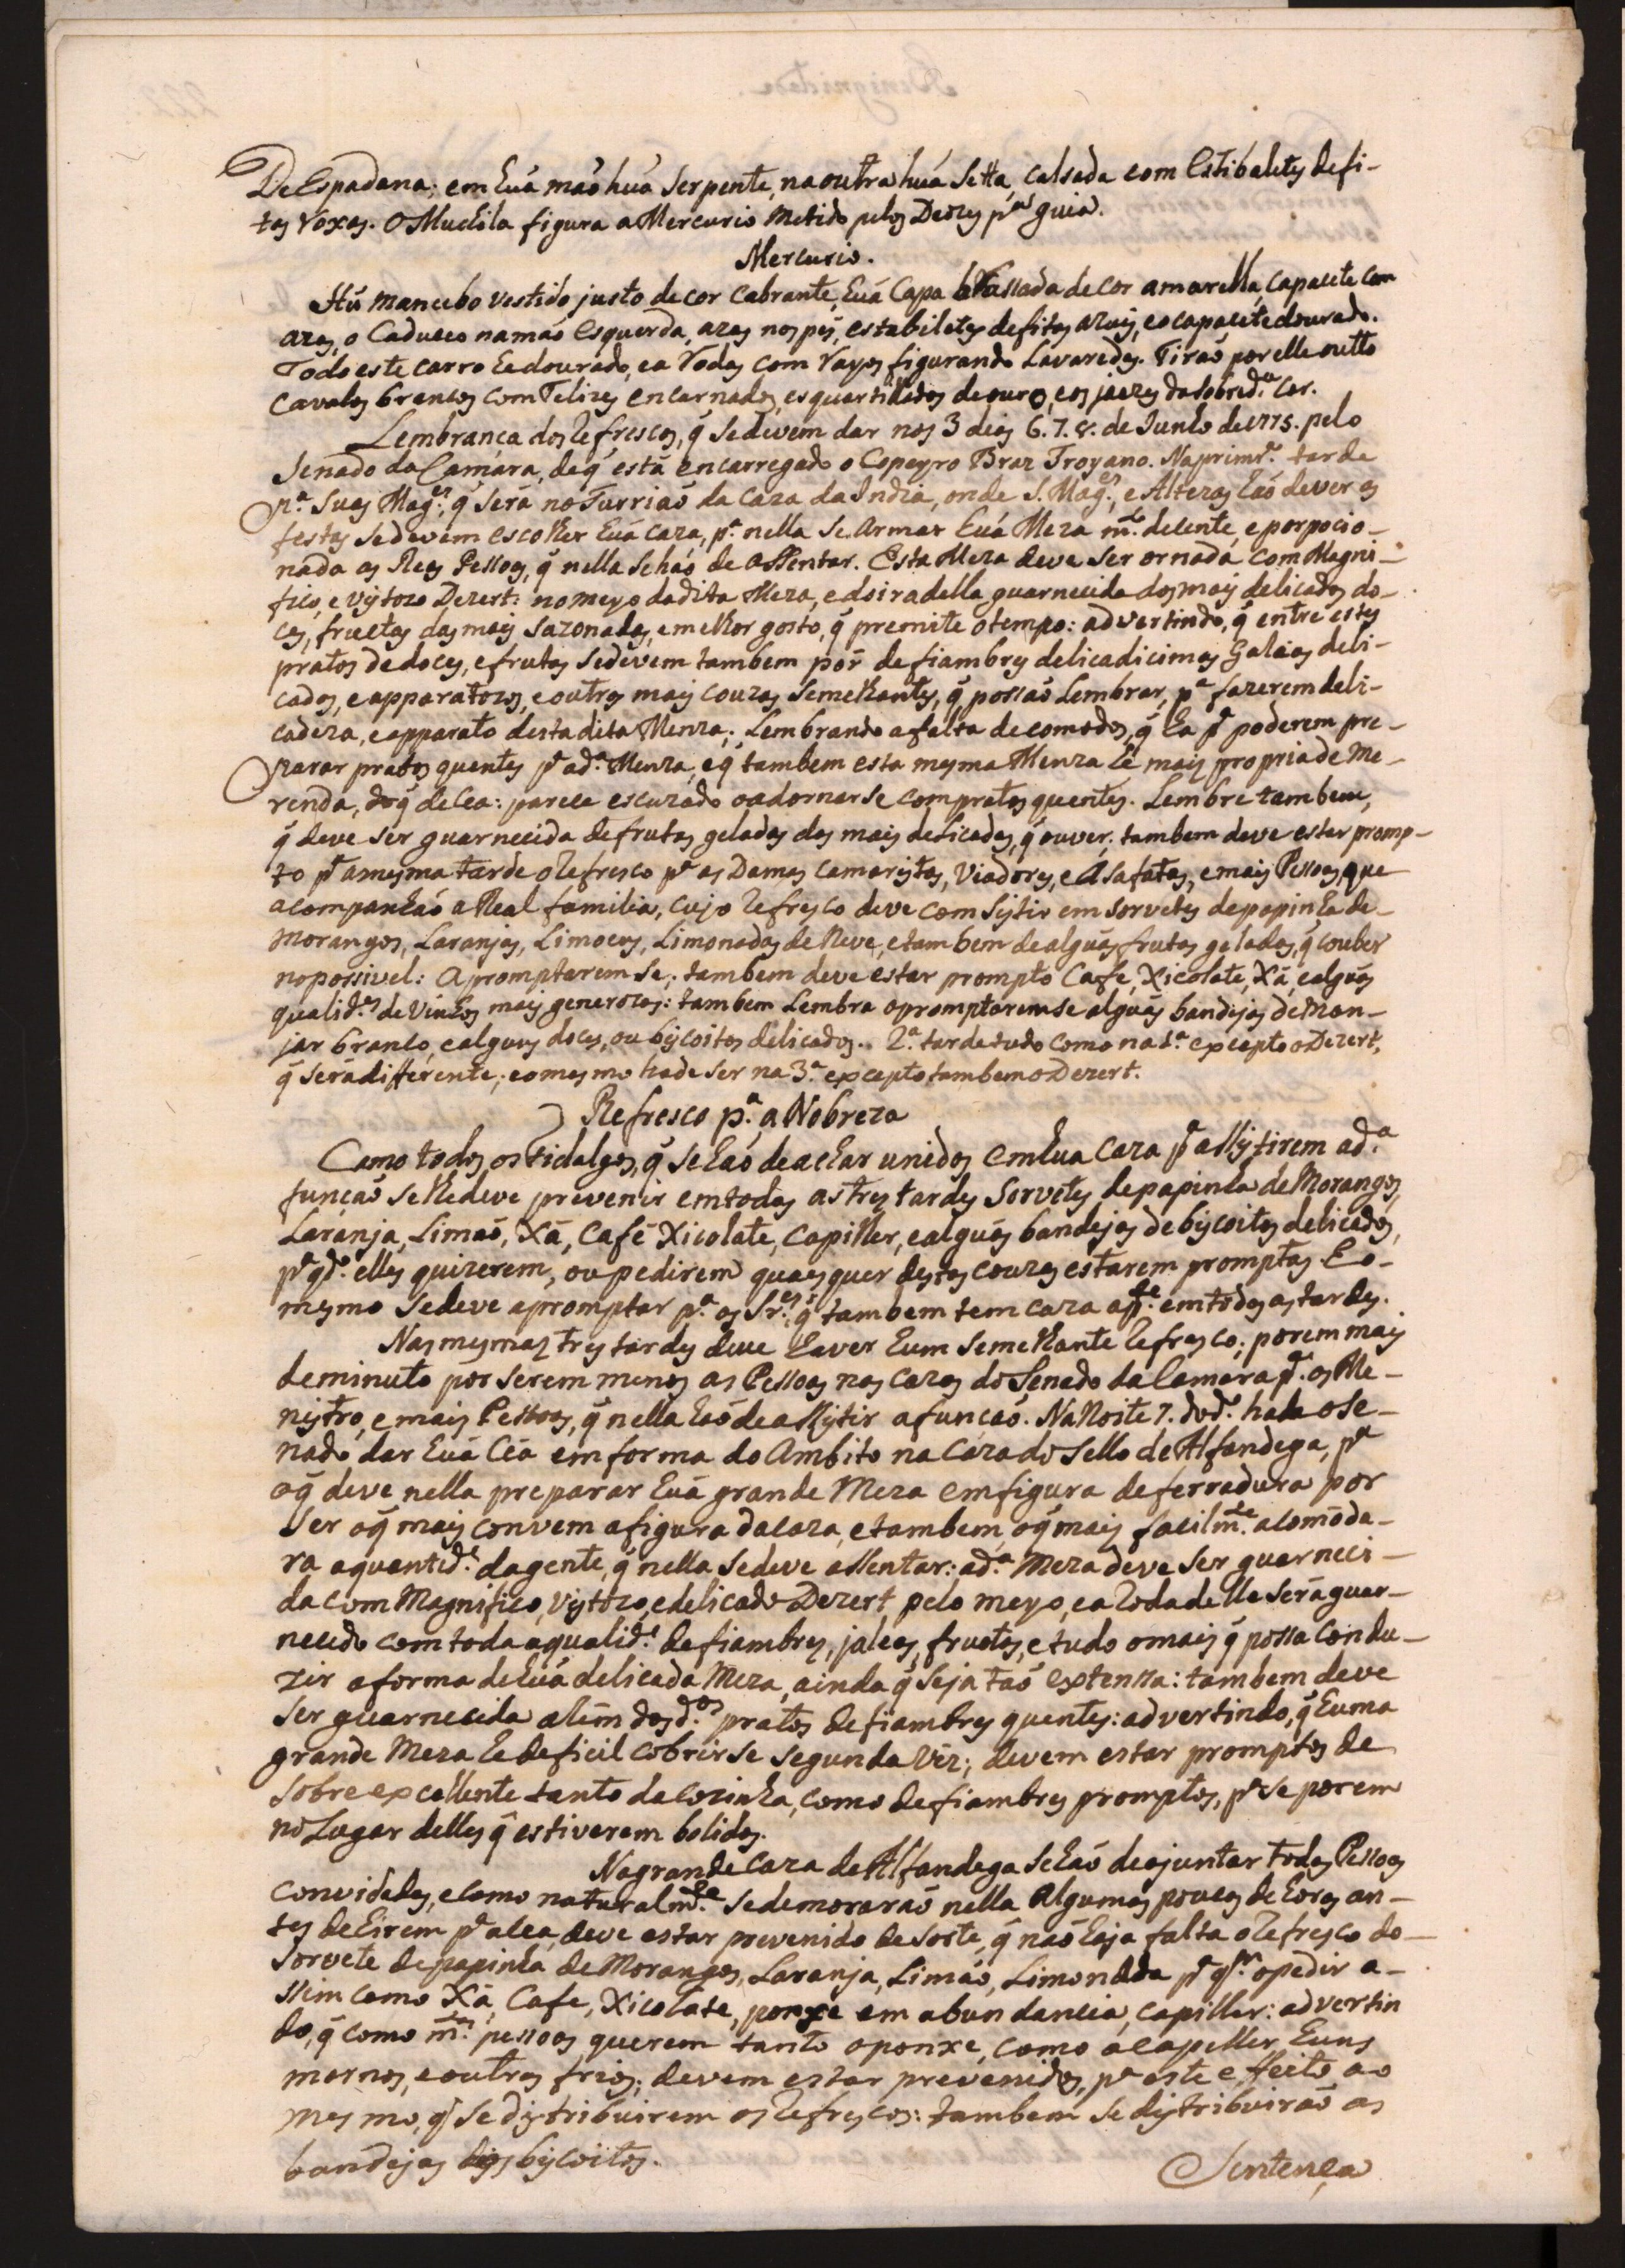 De Espadana; em huá maõ huá Serpente, na outra huá Setta, calsada com Estibaletes de fi-
tas roxas. O Muchila figura a Mercurio metido pelos Deozes pª guia.
Mercurio.
Hú mancebo vestido justo de cor cabrante, huá Capa de cor amarella, capacete com
azas, o Caduceo na maõ esquerda, azas nos pés, estabiletes de fitas azuis, e o capacete dourado.
Todo este carro he dourado, e a Rodas com Rayos figurando Lavaredas. Tiraõ por elle outto
cavalos brancos com Telizes encarnados, esquartilados de ouro, e os jaezes da sobredª cor.
Lembrança dos Refrescos, q̃ se devem dar nos 3 dias 6. 7. 8. de Junho de 1775. pelo
Senado da Camara, de q̃ está encarregado o Copeyro Braz Troyano. Na primrª tarde
pª Suas Mages. q̃ será no Turriaõ da caza da India, onde S. Mages. e Altezas haõ de ver as
festas se devem escolher huá caza, pª nella se armar huá Meza mto. decente, e porpocio-
nada as Reas Pessoas, q̃ nella se haõ de assentar. Esta Meza deve ser ornada com Magni-
fico, e vistozo Dezert: no meyo da dita Meza, e do ira della guarnecida dos mais delicados do-
ces, fructas das mais sazonadas, e melhor gosto, q̃ premite o tempo: advertindo, q̃ entre estes
pratos de doces, e frutas se devem tambem pôr de fiambres delicadicimos Galeas deli-
cados, e apparatozos, e outras mais couzas semelhantes, q̃ possaõ lembrar, pª fazerem deli-
cadeza, e apparato desta dita Menza; Lembrando a falta de comodos, q̃ ha pª poderem pre-
parar pratos quentes pª a dª Menza, e q̃ tambem esta mesma Menza hé mais propria de Me-
renda, do q̃ de Cea: parece escuzado o adornarse com pratos quentes. Lembre tambem,
q̃ deve ser guarnecida de frutas geladas das mais delicadas, q̃ ouver; tambem deve estar promp-
to pª a mesma tarde o Refresco pª as Damas Camaristas, Viadores, e Asafatas, e mais Pessoas, que
acompanhaõ a Real familia, cujo Refresco deve comsistir em sorvetes de papinha de
Morangos, Laranjas, Limoens, Limonadas de Neve, e tambem de alguãs frutas geladas, q̃ couber
no possivel: Apromptaremse; tambem deve estar prompto Cafe, Xicolate, Xá, e alguãs
qualides. de Vinhos mais generozos: tambem Lembra apromptaremse alguãs bandejas de Man-
jar branco, e alguns doces, ou biscoitos delicados. 2ª tarde tudo como na 1ª excepto o Dezert,
q̃ sera differente; e o mesmo hade ser na 3ª excepto tambem o Dezert.
Refresco pª a Nobreza
Como todos os Fidalgos, q̃ se haõ de achar unidos em hua caza pª assistirem a dª
funcaõ se lhe deve prevenir em todas as tres tardes Sorvetes de papinha de Morangos,
Laranja, Limaõ, Xá, Café Xicolate, Capiller, e alguãs bandejas de biscoitos delicados,
pª qdo. elles quizerem, ou pedirem quaesquer destas couzas estarem promptas E o-
mesmo se deve apromptar pª as Sras. q̃ tambem tem caza apte. em todas as tardes.
Nas mesmas tres tardes deve haver hum semelhante Refresco; porem mais
deminuto por serem menos as Pessoas nas cazas do Senado da Camara pª os Me-
nistro, e mais Pessoas, q̃ nella haõ de assistir a funcaõ. Na Noite 7. do dº. hade o Se-
nado dar huá Cêa em forma do Ambito na Caza do Sello de Alfandega, pª
o q̃ deve nella preparar huá grande Meza em figura de ferradura por
ser o q̃ mais convem a figura da caza, e tambem, o q̃ mais facilmte. acomôda-
ra a quantide. da gente, q̃ nella se deve assentar: a dª Meza deve ser guarneci-
da com Magnifico, vistozo, e delicado Dezert, pelo meyo, e a Roda delle será guar-
necido com toda a qualide. de fiambres, jaleas, fructas, e tudo o mais q̃ possa condu-
zir a forma de huá delicada Meza, ainda q̃ seja taõ extenssa: tambem deve
ser guarnecida além dos dos. pratos de fiambres quentes: advertindo, q̃ huma
grande Meza he deficil cobrirse segunda vez; devem estar promptos de
sobre excellente tanto da cozinha, como de fiambres promptos, pª se porem
no Lugar delles q̃ estiverem bolidos.
Na grande Caza de Alfandega se haõ de ajuntar todas Pessoas
convidadas, e como naturalmte. se demoraraõ nella Algumas poucas de horas an-
tes de hirem pª a Cea, deve estar prevenido de sorte, q̃ naõ haja falta o Refresco do-
sorvete de papinha de Morangos, Laranja, Limaõ, Limonada pª qm. o pedir a-
ssim como Xá, Cafe, Xicolate, ponxe em abundancia, capiller: advertin
do, q̃ como mtas. pessoas querem tanto o ponxe, como o capeller huns
mornos, e outros frios; devem estar prevenidos, pª este effeito ao
mesmo, q̃ se distribuirem os Refrescos: tambem se distribuiraõ as
bandejas dos biscoitos.
Sentença